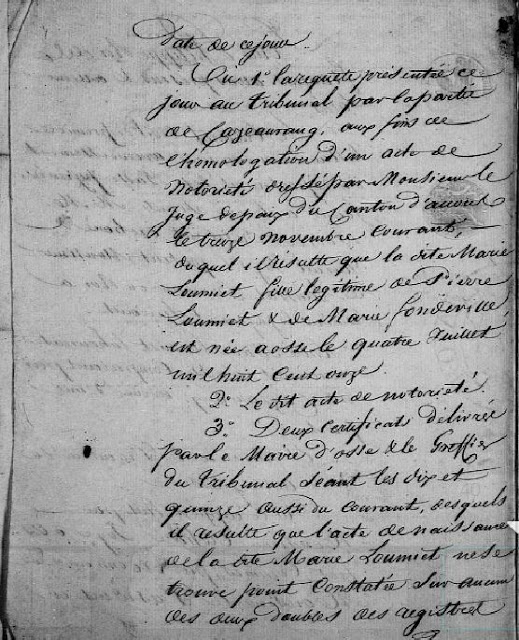 Date de ce jour.
Vu 1° la requete présentée ce
jour au Tribunal par la partie
de Cazeaurang, aux fins de
l'homologation d'un acte de
Notorieté dressé par Monsieur le
Juge de paix du Canton d'accous
le treize novembre Courant,
duquel il résulte que la dite Marie
Loumiet fille legitime de Pierre
Loumiet & de Marie fondeville,
est née a osse le quatre Juillet
mil huit Cent onze.
2° Le dit acte de notorieté.
3° Deux Certificats délivrés
par le Maire d'osse & le Greffier
du Tribunal séant les dix et
quinze aussi du courant, desquels
il resulte que l'acte de naissance
de la dite Marie Loumiet ne se
trouve point Constaté Sur aucun
des deux doubles des registres